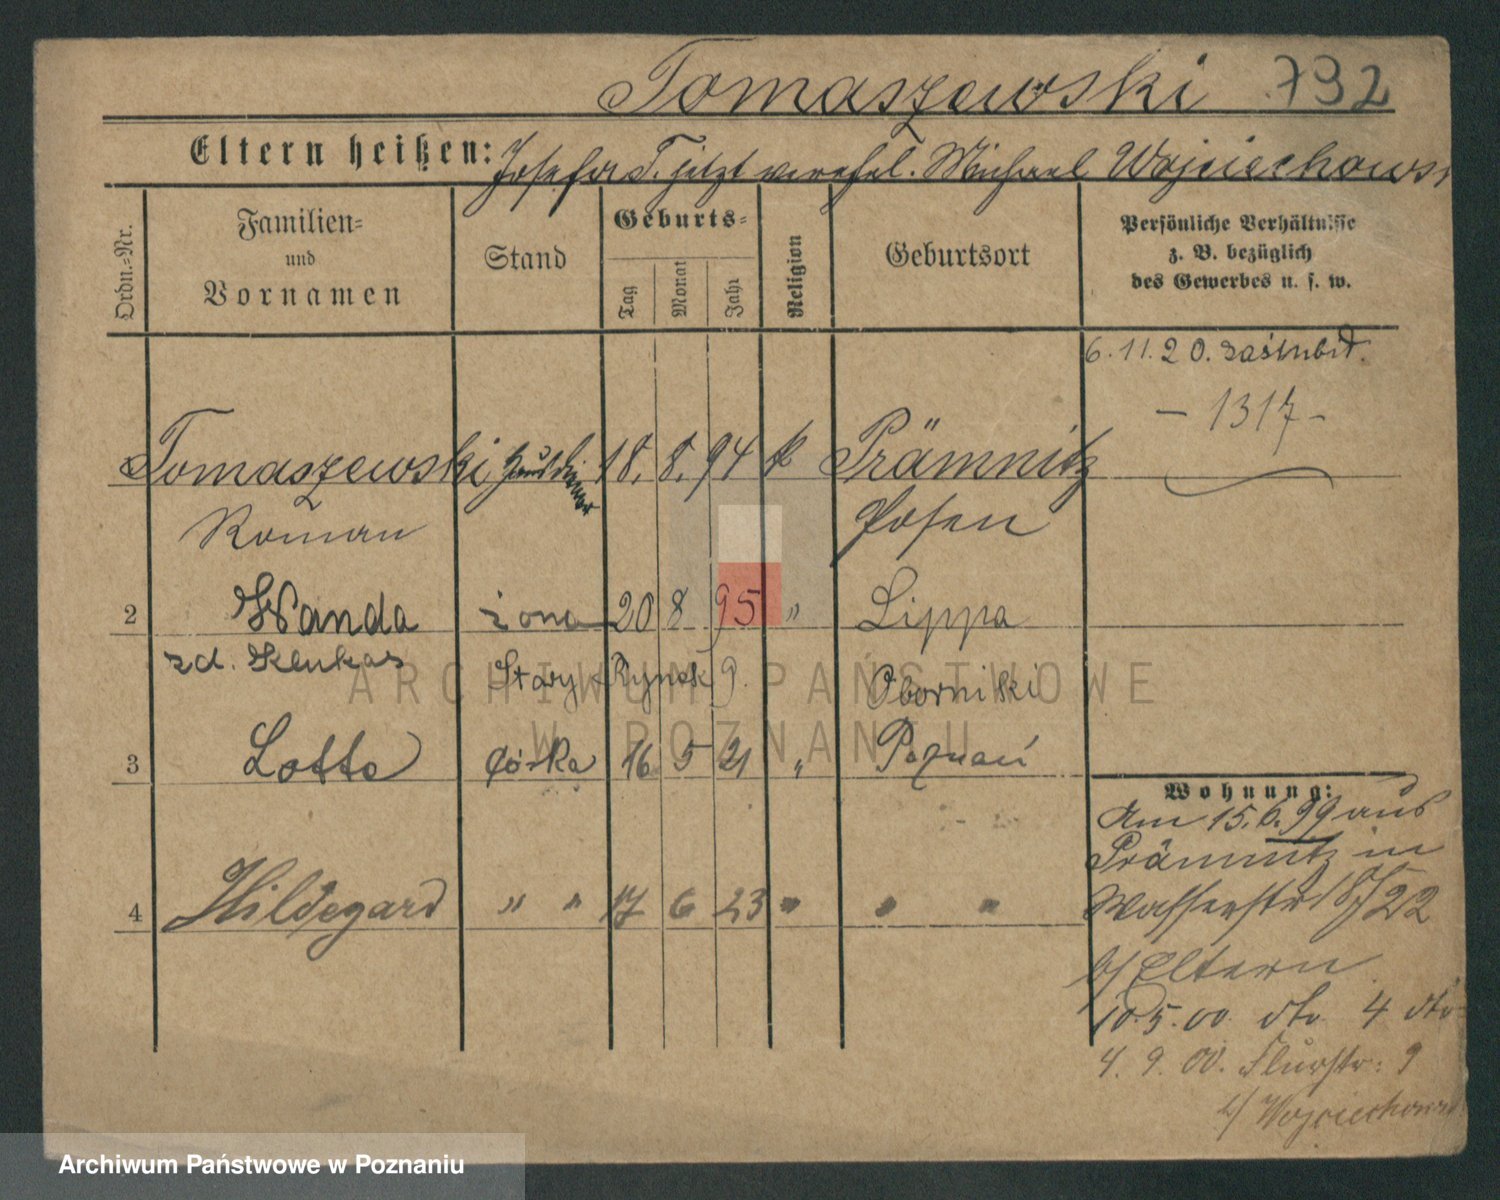 Tomaszewski 732
Eltern heißen: Josefa T. jetzt verehel. Michael Wojciechowsk
Ordn.=Nr.
Familien=
und
Vornamen
Stand
Geburts=
Tag
Monat
Jahr
Religion
Geburtsort
Persönliche Verhältnisse
z. B. bezüglich
des Gewerbes u. s. w.
6. 11. 20. zaślubił.
— 1317 —
Tomaszewski Hausdiener 18. 8. 94 k Prämnitz
Roman Posen
2 Wanda żona 20 8 95 " Lippa
zd. Klukas Stary Rynek 9. Oborniki
3 Lotte córka 16 5 21 " Poznań
Wohnung:
Am 15. 6. 99 aus
Prämnitz in
Wasserstr 18/22
4 Hildegard " " 17 6 23 " " "
b/ Eltern
10. 5. 00. dto. 4 dto
4. 9. 00. Flurstr: 9
b/ Wojciechowsk
ARCHIWUM PAŃSTWOWE
W POZNANIU
Archiwum Państwowe w Poznaniu